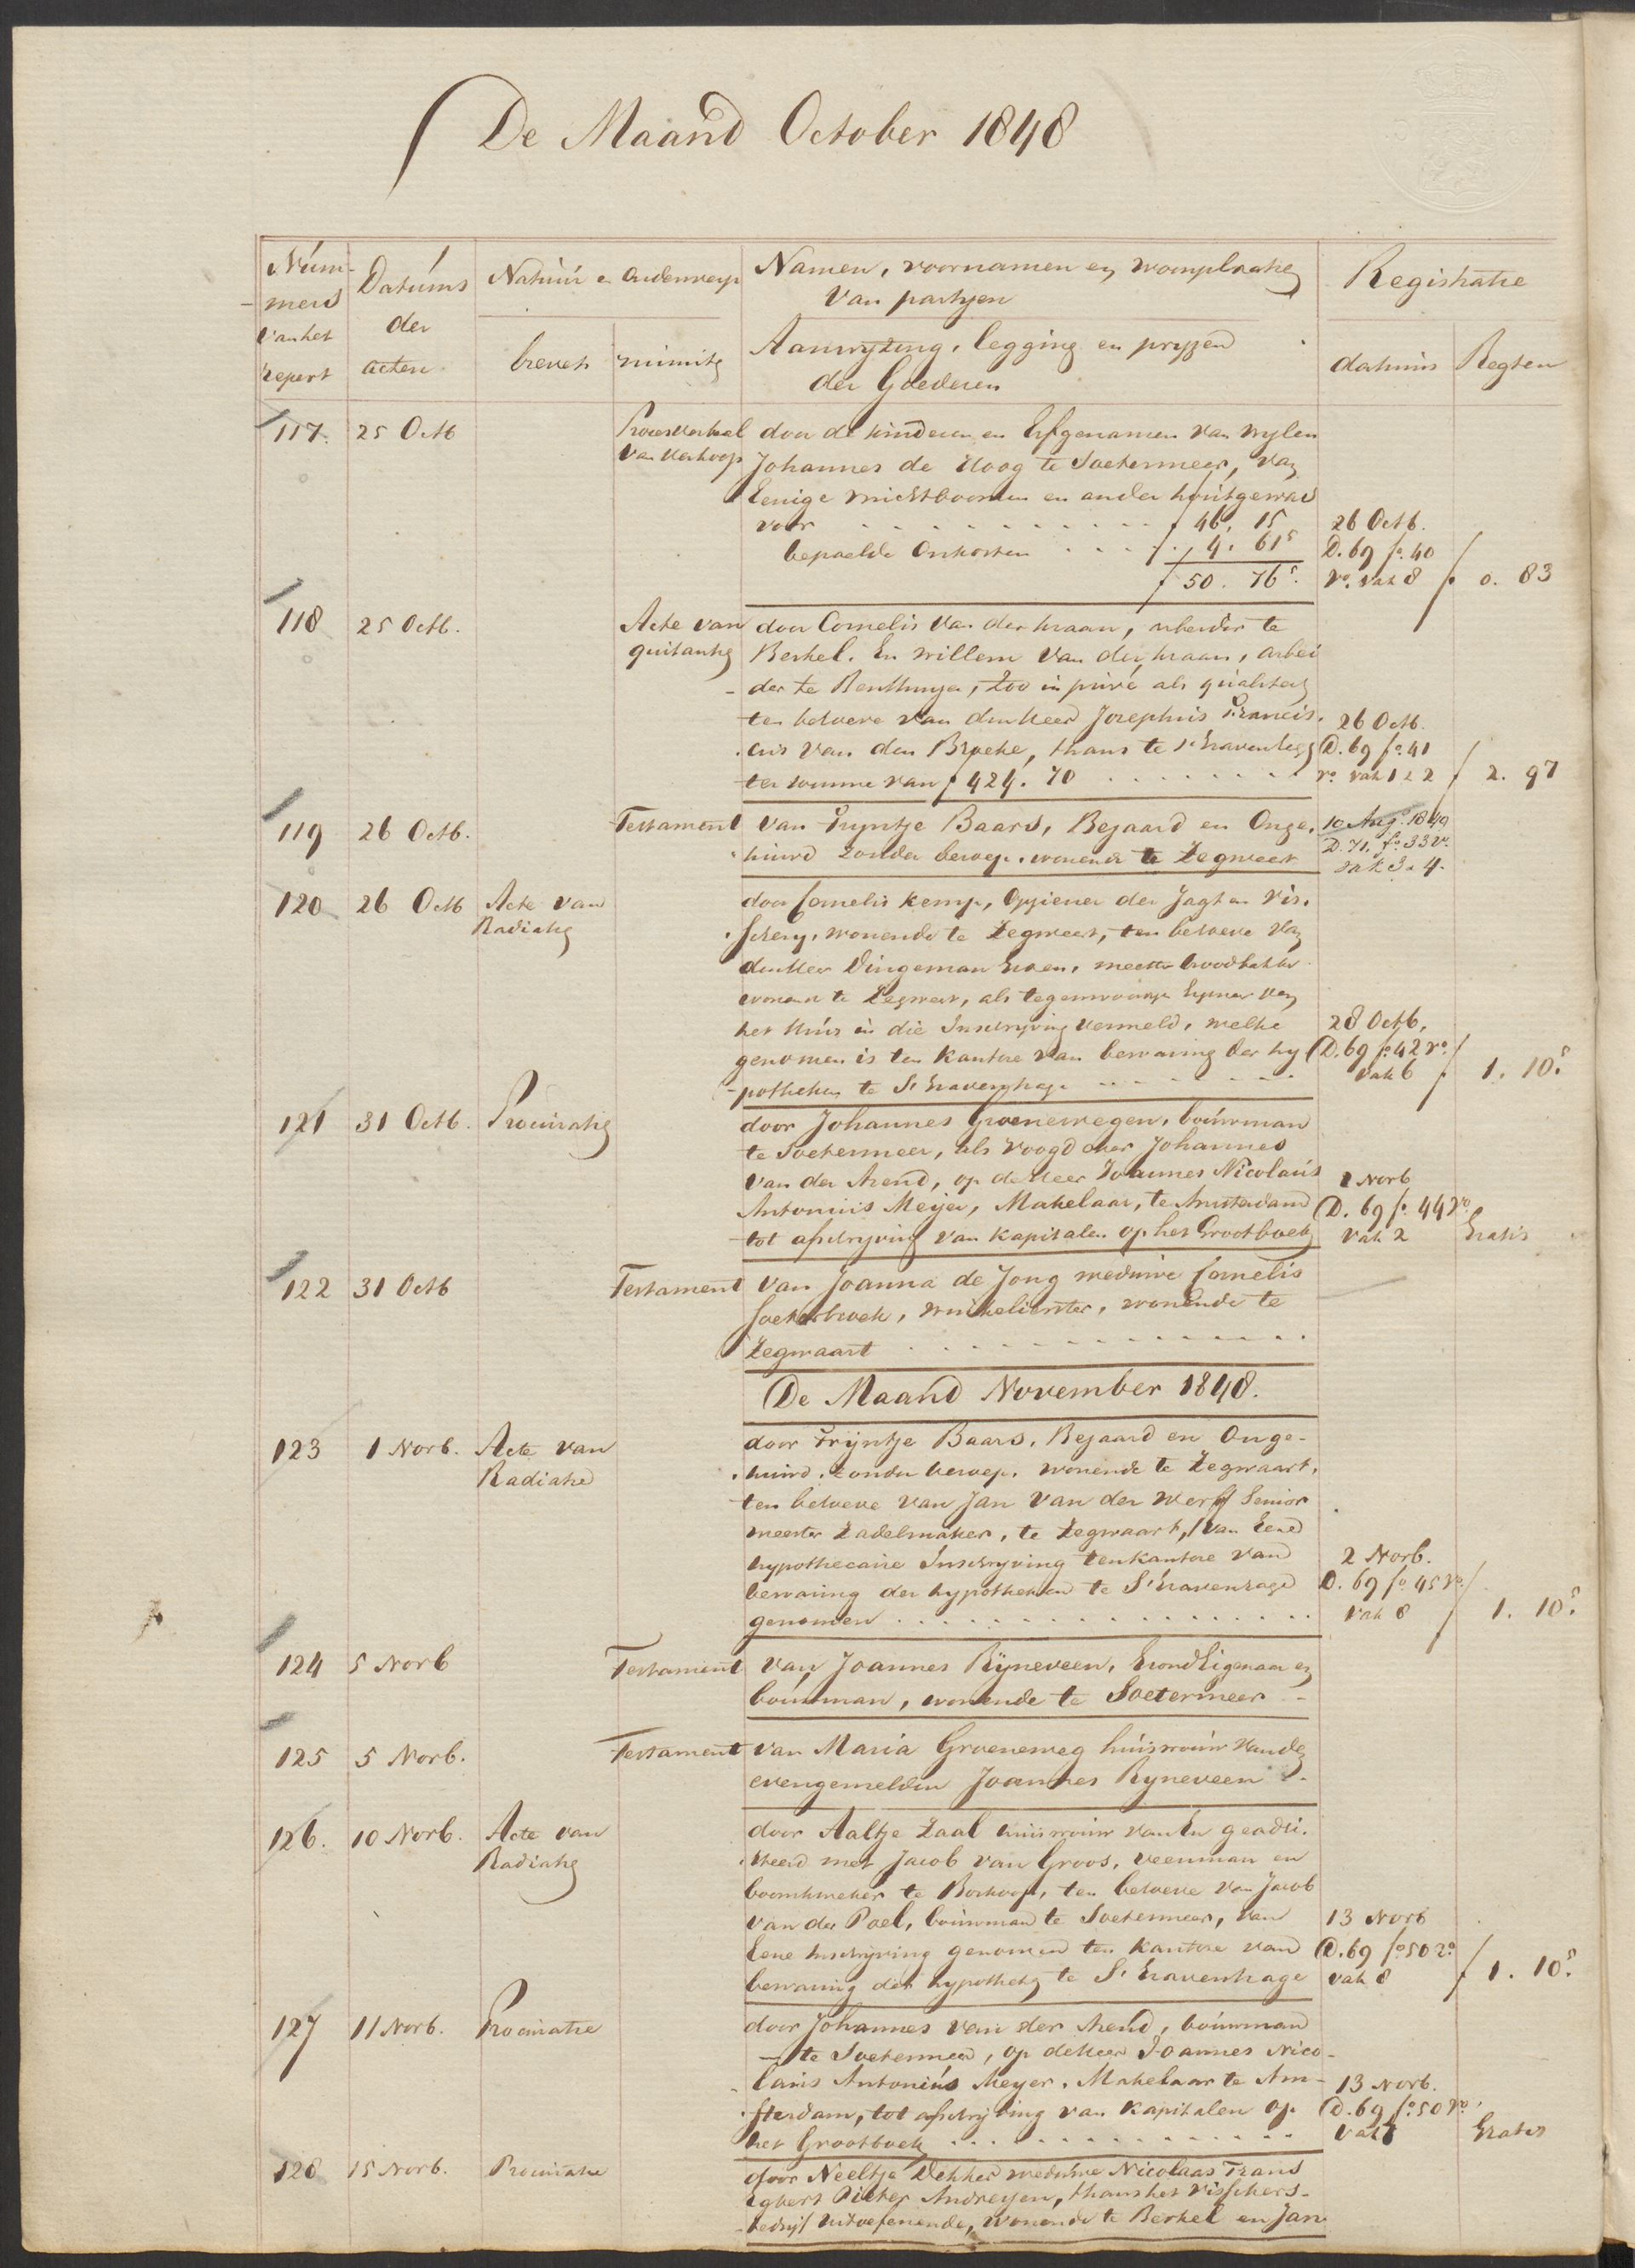 De Maand October 1848
Num-
mers
van het
repert
Datums
der
acten
Natuur en Onderwerp
brevet
minute
Namen, voornamen en woonplaatse
van partyen
Aanwyzing, legging en pryzen
der Goederen
Registratie
datums
Regten
117. 25 Octb Procesverbaal door de kinderen en Erfgenamen van wylen
van verkoop Johannes de Hoog te Soetermeer, van
Eenige vruchtboomen en ander houtgewas
voor f 46. 15 26 Octb.
bepaelde Onkosten f 4. 61⁵ D. 69 fo. 40
f 50. 76⁵. ro. vak 8 f 0. 83
118 25 Octb. Acte van door Cornelis van der kraan, arbeider te
quitantie Berkel. En willem van der kraan, arbei
der te Benthuyzen, zoo in privé als qualiteit
ten behoeve van den Heer Josephus Francis. 26 Octb.
cus van den Broeke, thans te s'Gravenhage D. 69 fo. 41
ter somme van f 424. 70 ro. vak 1 & 2 f 2. 97
119 26 Octb. Testament van Tryntje Baars, Bejaard en Onge. 10 Aug. 1849
huwd zonder beroep. wonende te Zegweert D. 71. fo. 33 vo.
vak 3. 4.
120 26 Octb Acte van door Cornelis Kemp, Opziener der Jagt en Vis.
Radiatie scherij, wonende te Zegweert, ten behoeve van
den Heer Dingeman , meester broodbakker
wonende te Zegweert, als tegenwoordige Eigenaar van
het Huis in die Inschryving vermeld, welke 28 Octb.
genomen is ten kantore van bewaring der hy D. 69 fo. 42 vo.
potheken te S'Gravenhage vak 6 f 1. 10⁵.
121 31 Octb. Procuratie door Johannes Groenewegen, bouwman
te Soetermeer, als voogd over Johannes
van der Arend, op de Heer Joannes Nicolaus 1 Novb
Antonius Meijer, Makelaar, te Amsterdam D. 69 fo. 44 vo.
tot afschryving van kapitalen op het Grootboek vak 2 Gratis
122 31 Octb Testament van Joanna de Jong weduwe Cornelis
Soeterbroek, winkelierster, wonende te
Zegwaart
De Maand November 1848.
123 1 Novb. Acte van door Tryntje Baars, Bejaard en Onge-
Radiatie huwd. zonder beroep. wonende te Zegwaart,
ten behoeve van Jan van der Werf Senior
meester Zadelmaker, te Zegwaart, van Eene
hypothecaire Inschryving ten kantore van 2 Novb.
bewaring der hypotheken te S'Gravenhage D. 69 fo. 45 vo.
genomen vak 8 f 1. 10⁵.
124 5 Novb Testament van Joannes Rijneveen, Grond Eigenaar en
bouwman, wonende te Soetermeer
125 5 Novb. Testament van Maria Groeneweg huisvrouw van de
evengemelden Joannes Ryneveen
126. 10 Novb. Acte van door Aaltje Zaal huisvrouw van En geadsi.
Radiatie steerd met Jacob van Groos, veenman en
boomkweker te Boskoop, ten behoeve van Jacob
van der Poel, bouwman te Soetermeer, van 13 Novb
Eene Inschryving genomen ten kantore van D. 69 fo. 50 ro.
bewaring der hypotheken te S'Gravenhage vak 8 f 1. 10⁵.
127 11 Novb. Procuratie door Johannes van der Arend, bouwman
te Soetermeer, op de Heer Joannes Nico-
laus Antonius Meyer. Makelaar te Am- 13 Novb.
sterdam, tot afschryving van kapitalen op D. 69 fo. 50 vo.
het Grootboek vak Gratis
128 15 Novb. Procuratie door Neeltje Dekker weduwe Nicolaas Frans
Egbert Pieter Andreyen, thans het visschers-
bedryf uitoefenende, Wonende te Berkel en Jan